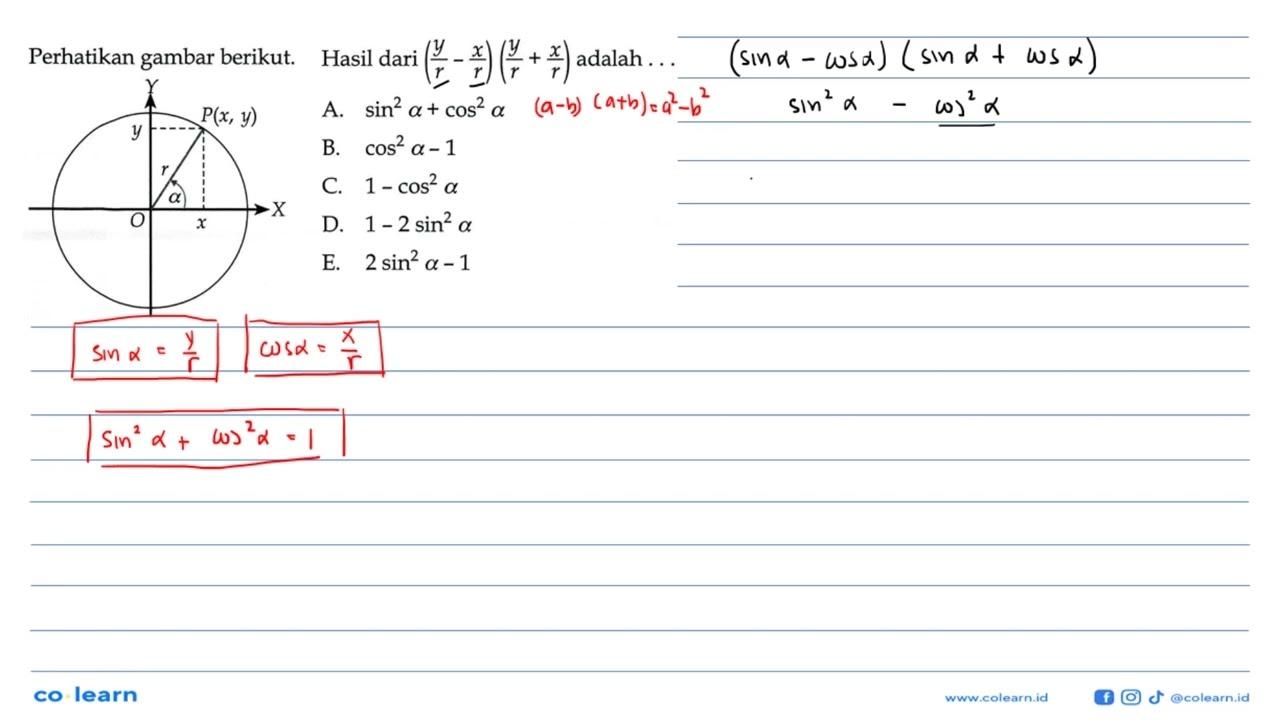 Perhatikan gambar berikut.
Y
P(x, y)
y
r
α
O
x
X
Hasil dari (y/r - x/r)(y/r + x/r) adalah . . .
A. sin² α + cos² α
B. cos² α – 1
C. 1 – cos² α
D. 1 – 2 sin² α
E. 2 sin² α – 1
(a-b) (a+b) = a² - b²
(sin α - cos α) (sin α + cos α)
sin² α - cos² α
sin α = y/r
cos α = x/r
sin² α + cos² α = 1
co learn
www.colearn.id
@colearn.id